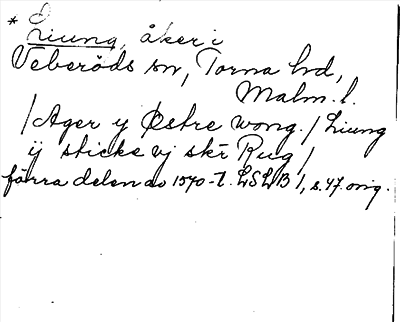 * Liung, åker i
Veberöds sn, Torna hd,
Malm. l.
/Ager y Østre wong./ Liung
ij sticke vj skr Rug/
förra delen av 1570-t. LSLB 1, s. 47. orig.